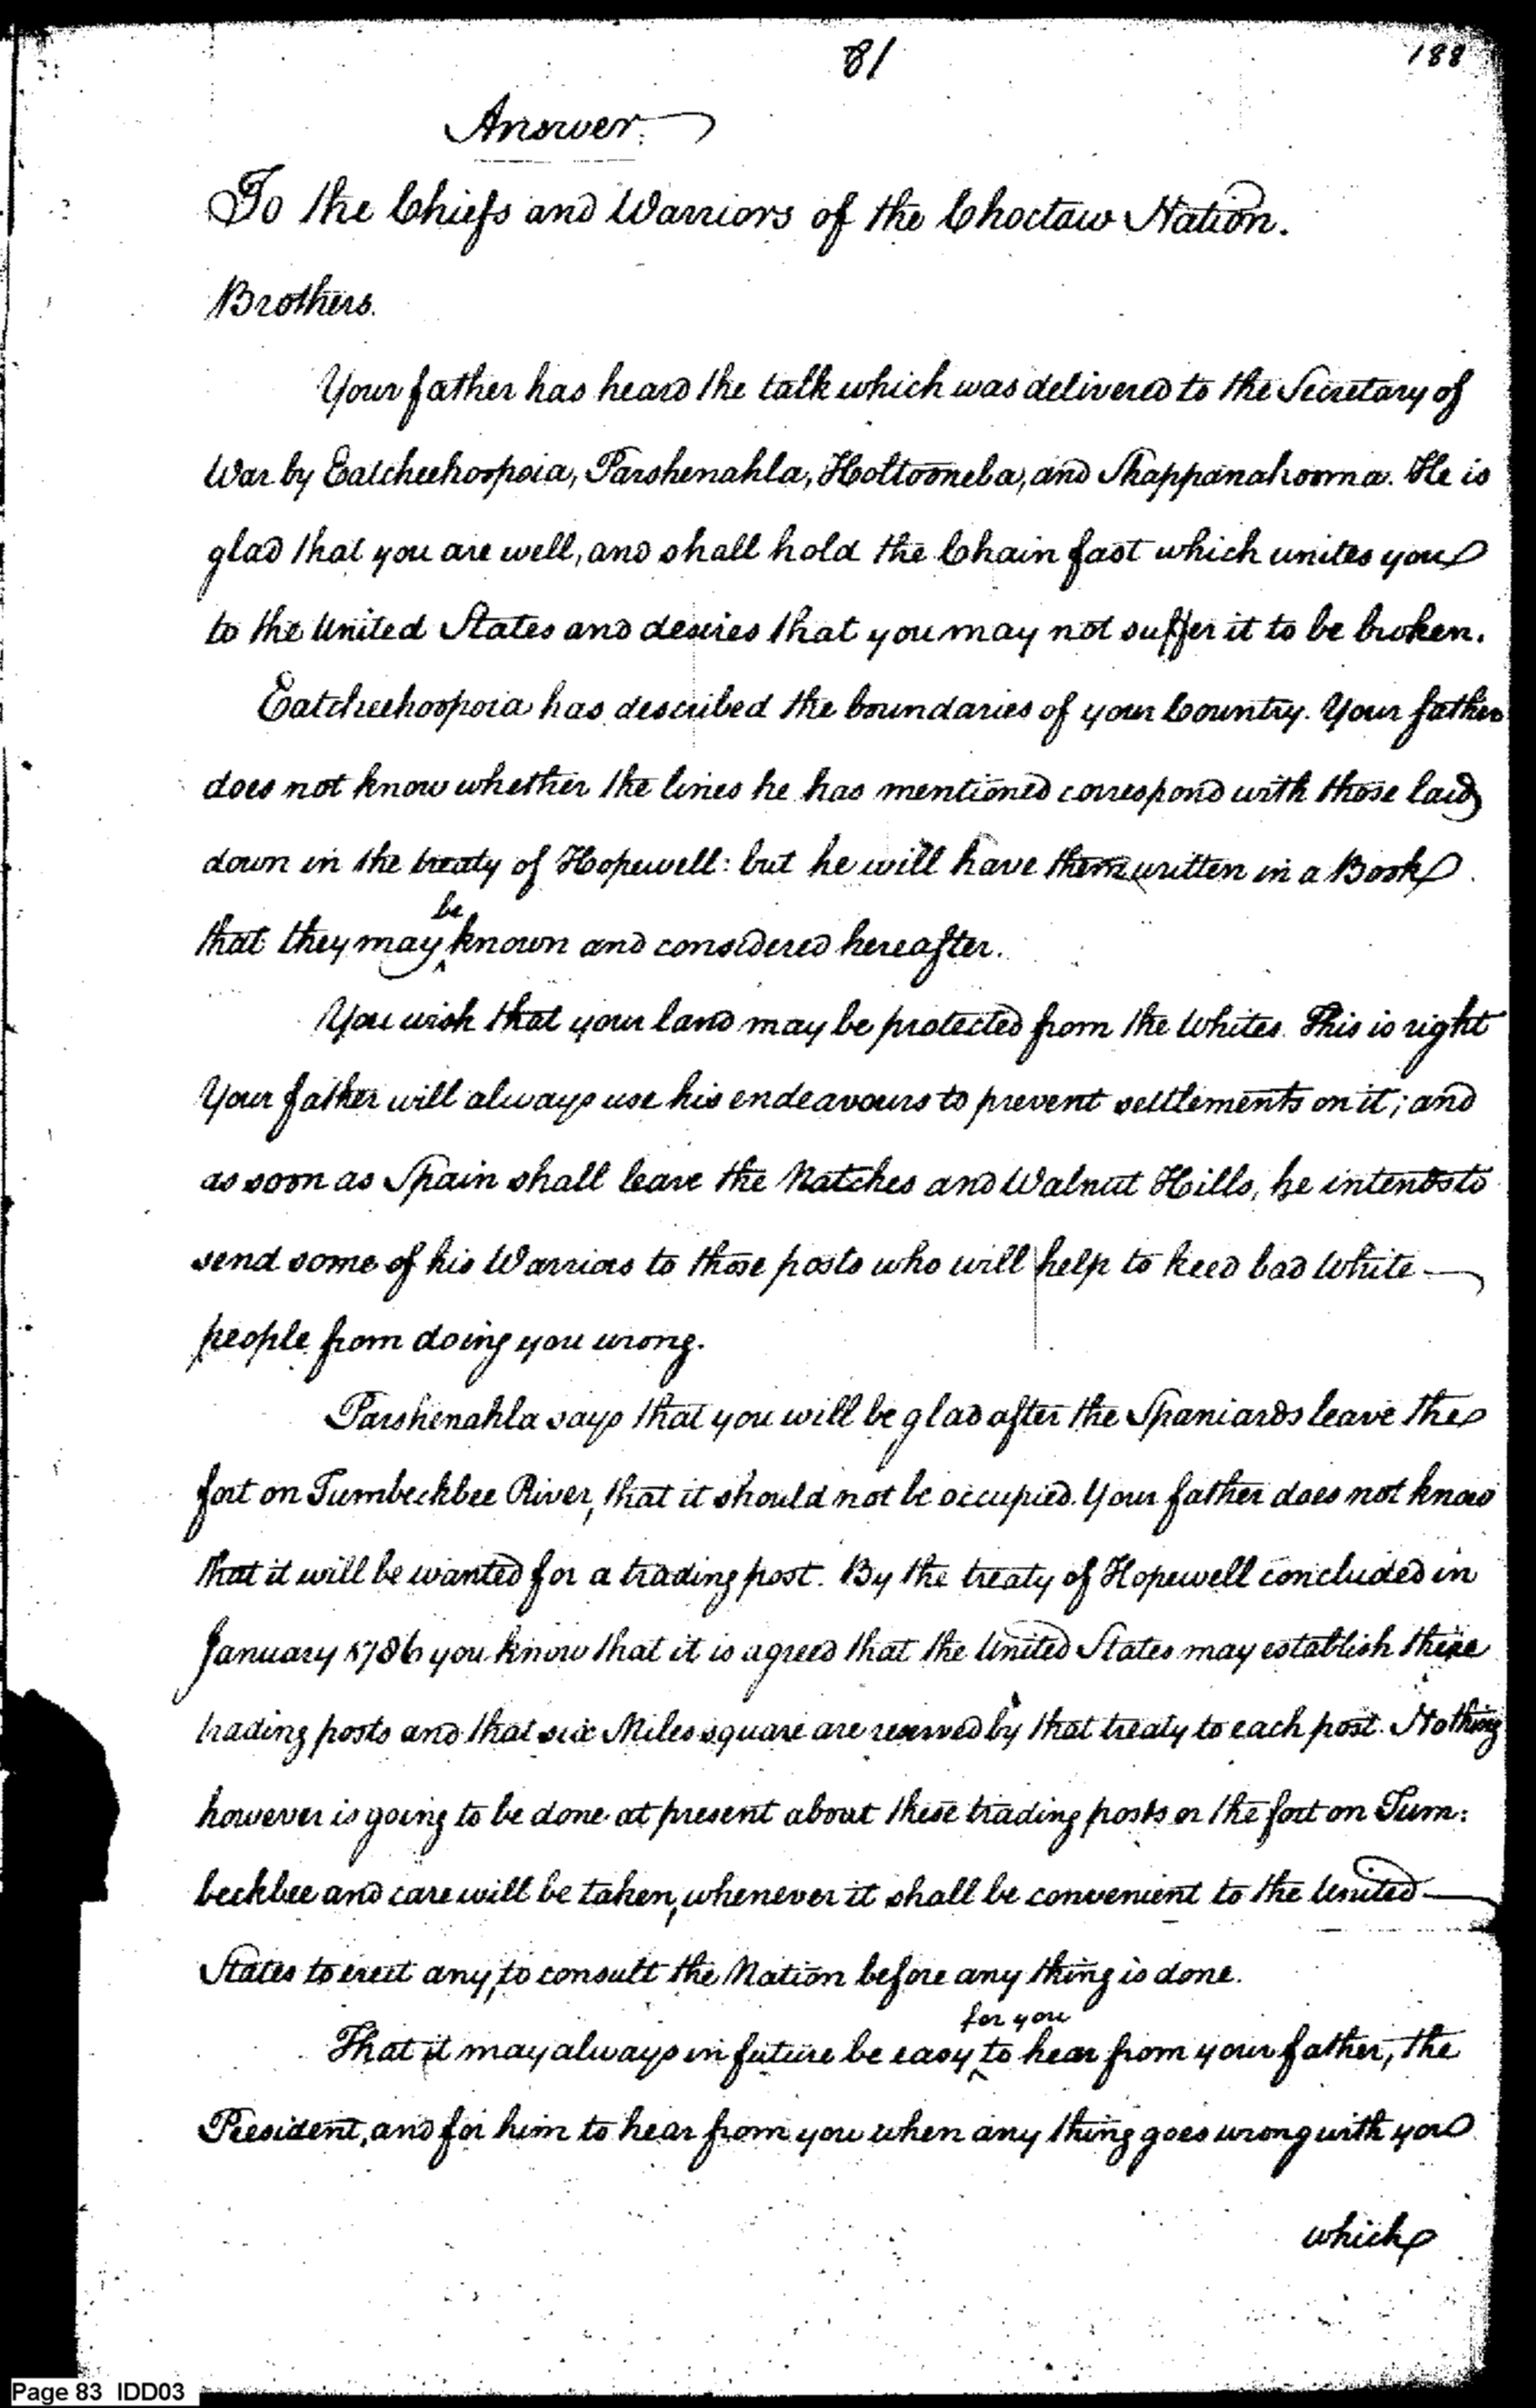 81
188
Answer.
To the Chiefs and Warriors of the Choctaw Nation.
Brothers.
Your father has heard the talk which was delivered to the Secretary of
War by Eatcheehoopoia, Parshenahla, Hottooneba, and Skappanahooma. He is
glad that you are well, and shall hold the Chain fast which unites you
to the United States and desires that you may not suffer it to be broken.
Eatcheehoopoia has described the boundaries of your Country. Your father
does not know whether the lines he has mentioned correspond with those laid
down in the treaty of Hopewell: but he will have them written in a Book
be
that they may ^ known and considered hereafter.
You wish that your land may be protected from the Whites. This is right
Your father will always use his endeavours to prevent settlements on it; and
as soon as Spain shall leave the Natches and Walnut Hills, he intends to
send some of his Warriors to those posts who will help to keed bad White
people from doing you wrong.
Parshenahla says that you will be glad after the Spaniards leave the
fort on Tumbeckbee River, that it should not be occupied. Your father does not know
that it will be wanted for a trading post. By the treaty of Hopewell concluded in
January 1786 you know that it is agreed that the United States may establish three
trading posts and that six Miles square are reserved by that treaty to each post. Nothing
however is going to be done at present about these trading posts or the fort on Tum:
beckbee and care will be taken, whenever it shall be convenient to the United
States to erect any, to consult the Nation before any thing is done.
for you
That it may always in future be easy ^ to hear from your father, the
President, and for him to hear from you when any thing goes wrong with you
which
Page 83 IDD03